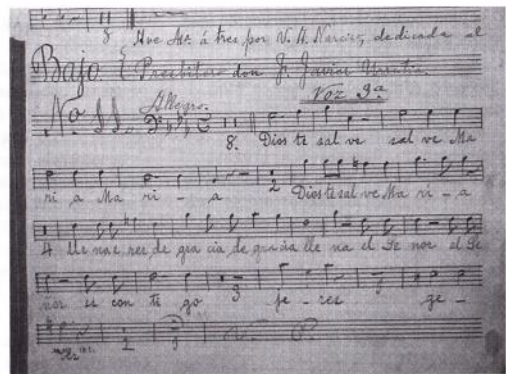 8 Ave Ma. á tres por V. A. Narcizo, dedicada al
Bajo. Presbítero don J. Javier Urrutia.
Allegro. Voz 3ª
No. 8. Dios te sal ve sal ve Ma
ri a Ma ri - a 2 Dios te sal ve Ma ri - a
4 lle na e res de gra cia de gracia lle na el Se ñor el Se
ñor es con ti go 3 je - res ge -
2 5